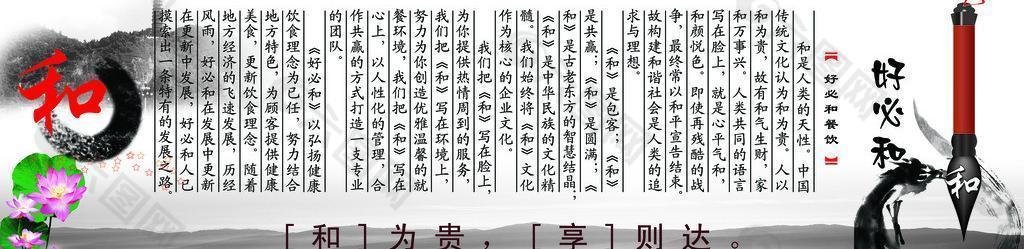 好必和
和
【好必和餐饮】
和是人类的天性。中国
传统文化认为和为贵。人以
和为贵，故有和气生财，家
和万事兴。人类共同的语言
写在脸上，就是心平气和，
和颜悦色。即使再残酷的战
争，最终常以和平宣告结束。
故构建和谐社会是人类的追
求与理想。
《和》是包客；《和》
是共赢；《和》是圆满；《
和》是古老东方的智慧结晶，
《和》是中华民族的文化精
髓。我们始终将《和》文化
作为核心的企业文化。
我们把《和》写在脸上，
为你提供热情周到的服务，
我们把《和》写在环境上，
努力为你创造优雅温馨的就
餐环境，我们把《和》写在
心上，以人性化的管理，合
作共赢的方式打造一支专业
的团队。
《好必和》以弘扬健康
饮食理念为己任，努力结合
地方特色，为顾客提供健康
美食，更新饮食理念。随着
地方经济的飞速发展，历经
风雨，好必和在发展中更新
在更新中发展，好必和人已
摸索出一条特有的发展之路。
和
[和]为贵，[享]则达。